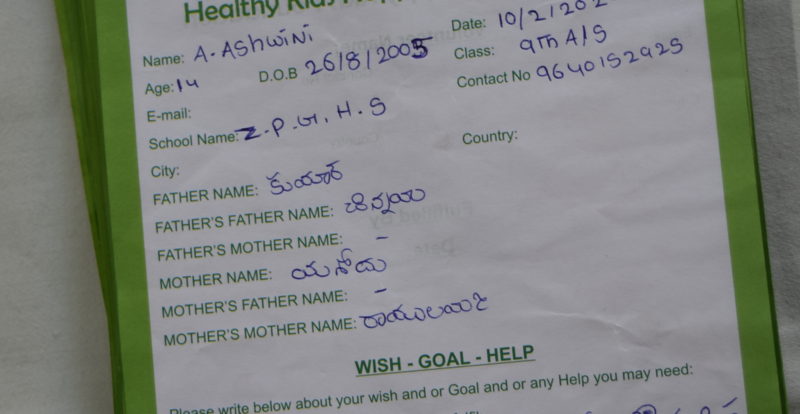 Healthy Kids
Name: A. ASHWINI
Date: 10/2/202
Age: 14
D.O.B 26/8/2005
Class: 9Th A/S
E-mail:
Contact No 9640152925
School Name: Z.P.G.H.S
City:
Country:
FATHER NAME: కుమార్
FATHER'S FATHER NAME: చిన్నయ
FATHER'S MOTHER NAME: -
MOTHER NAME: యశోద
MOTHER'S FATHER NAME: -
MOTHER'S MOTHER NAME:
WISH - GOAL - HELP
Please write below about your wish and or Goal and or any Help you may need: